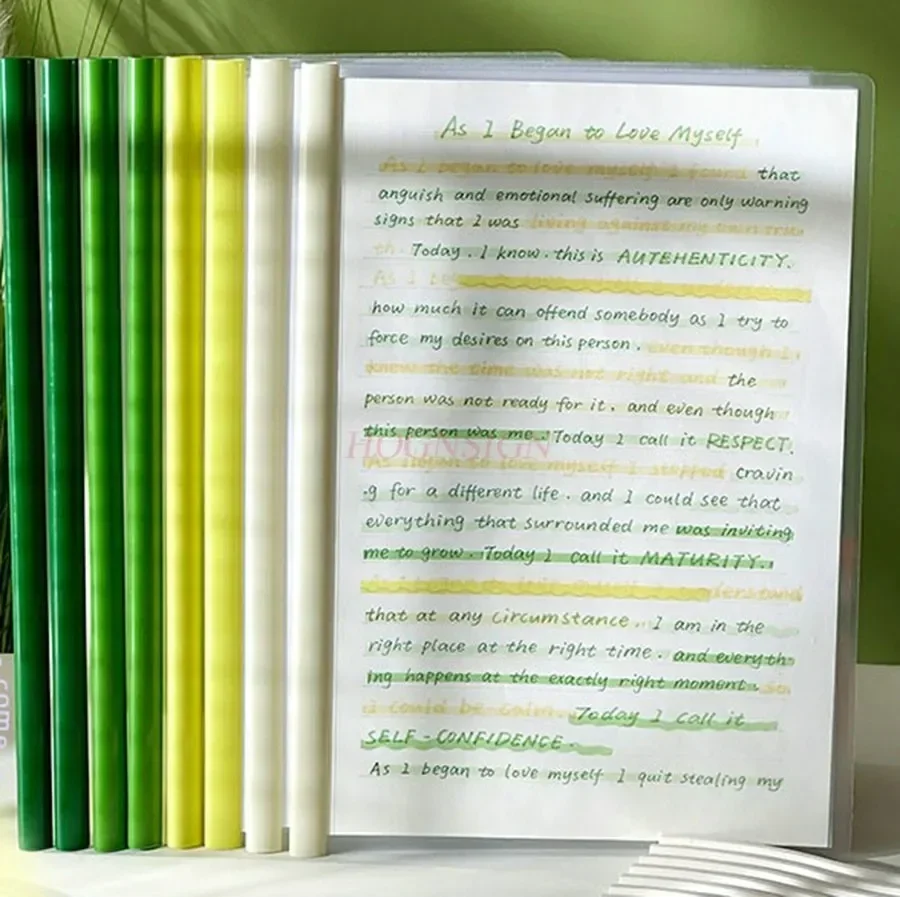 As I Began to Love Myself
As I began to love myself I found that
anguish and emotional suffering are only warning
signs that I was living against my own tru
th. Today. I know. this is AUTEHENTICITY.
As I be
how much it can offend somebody as I try to
force my desires on this person. even though I
knew the time was not right and the
person was not ready for it. and even though
this person was me. Today I call it RESPECT.
As I began to love myself I stopped cravin
-g for a different life. and I could see that
everything that surrounded me was inviting
me to grow. Today I call it MATURITY.
derstand
that at any circumstance. I am in the
right place at the right time. and everyth-
ing happens at the exactly right moment. so
I could be calm. Today I call it
SELF-CONFIDENCE.
As I began to love myself I quit stealing my
HOGNSIGN